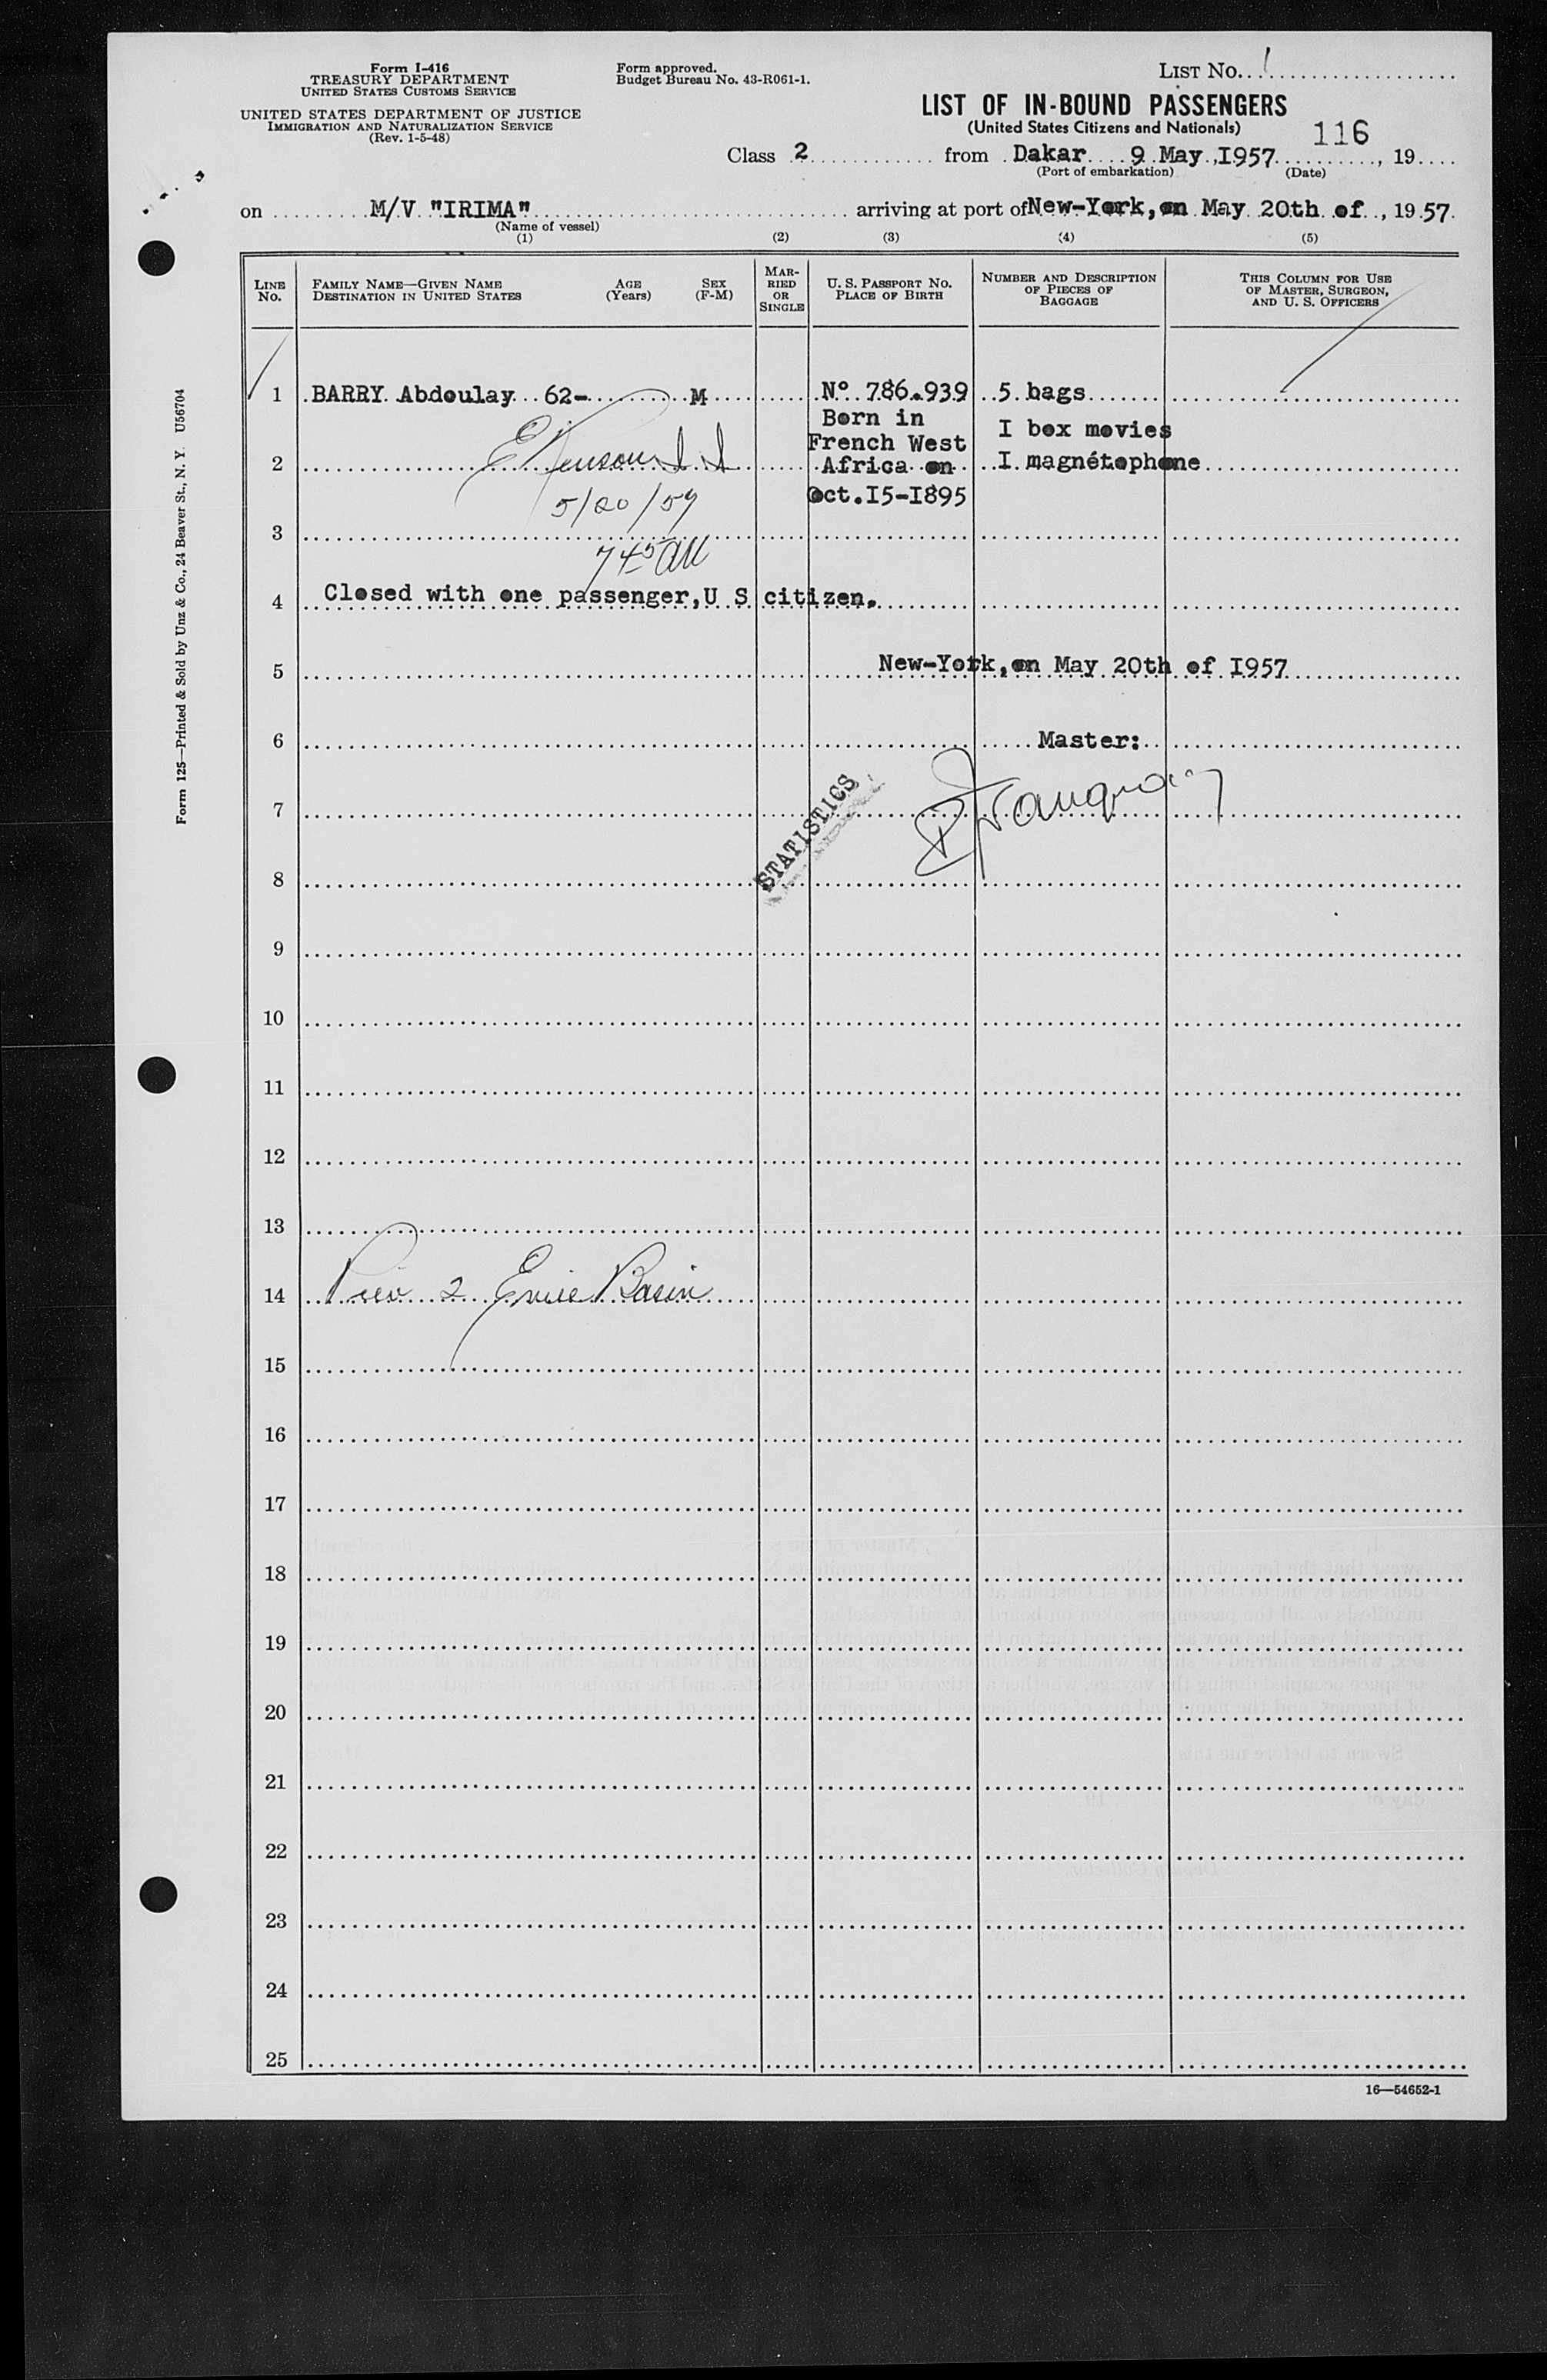 Form I-416
TREASURY DEPARTMENT
UNITED STATES CUSTOMS SERVICE
UNITED STATES DEPARTMENT OF JUSTICE
IMMIGRATION AND NATURALIZATION SERVICE
(Rev. 1-5-48)
Form approved.
Budget Bureau No. 43-R061-1.
LIST NO. 1
LIST OF IN-BOUND PASSENGERS
(United States Citizens and Nationals)
116
Class 2 from Dakar 9 May, I957, 19
(Port of embarkation) (Date)
on M/V "IRIMA" arriving at port of New-York, on May 20th of, 19 57
(Name of vessel)
(1) (2) (3) (4) (5)
LINE No.
FAMILY NAME—GIVEN NAME
DESTINATION IN UNITED STATES
AGE (Years)
SEX (F-M)
MAR-
RIED
OR
SINGLE
U. S. PASSPORT NO.
PLACE OF BIRTH
NUMBER AND DESCRIPTION
OF PIECES OF
BAGGAGE
THIS COLUMN FOR USE
OF MASTER, SURGEON,
AND U. S. OFFICERS
1 BARRY Abdoulay 62- M N° 786.939 5 bags
Born in I box movies
French West
2 Africa on I magnétophone
Oct.I5-I895
5/20/57
3
745 AM
4 Closed with one passenger, U S citizen.
5 New-York, on May 20th of I957
6 Master:
7
STATISTICS
8
9
10
11
12
13
14 2 Erie Basin
15
16
17
18
19
20
21
22
23
24
25
16—54652-1
Form 125—Printed & Sold by Unz & Co., 24 Beaver St., N. Y. U56704